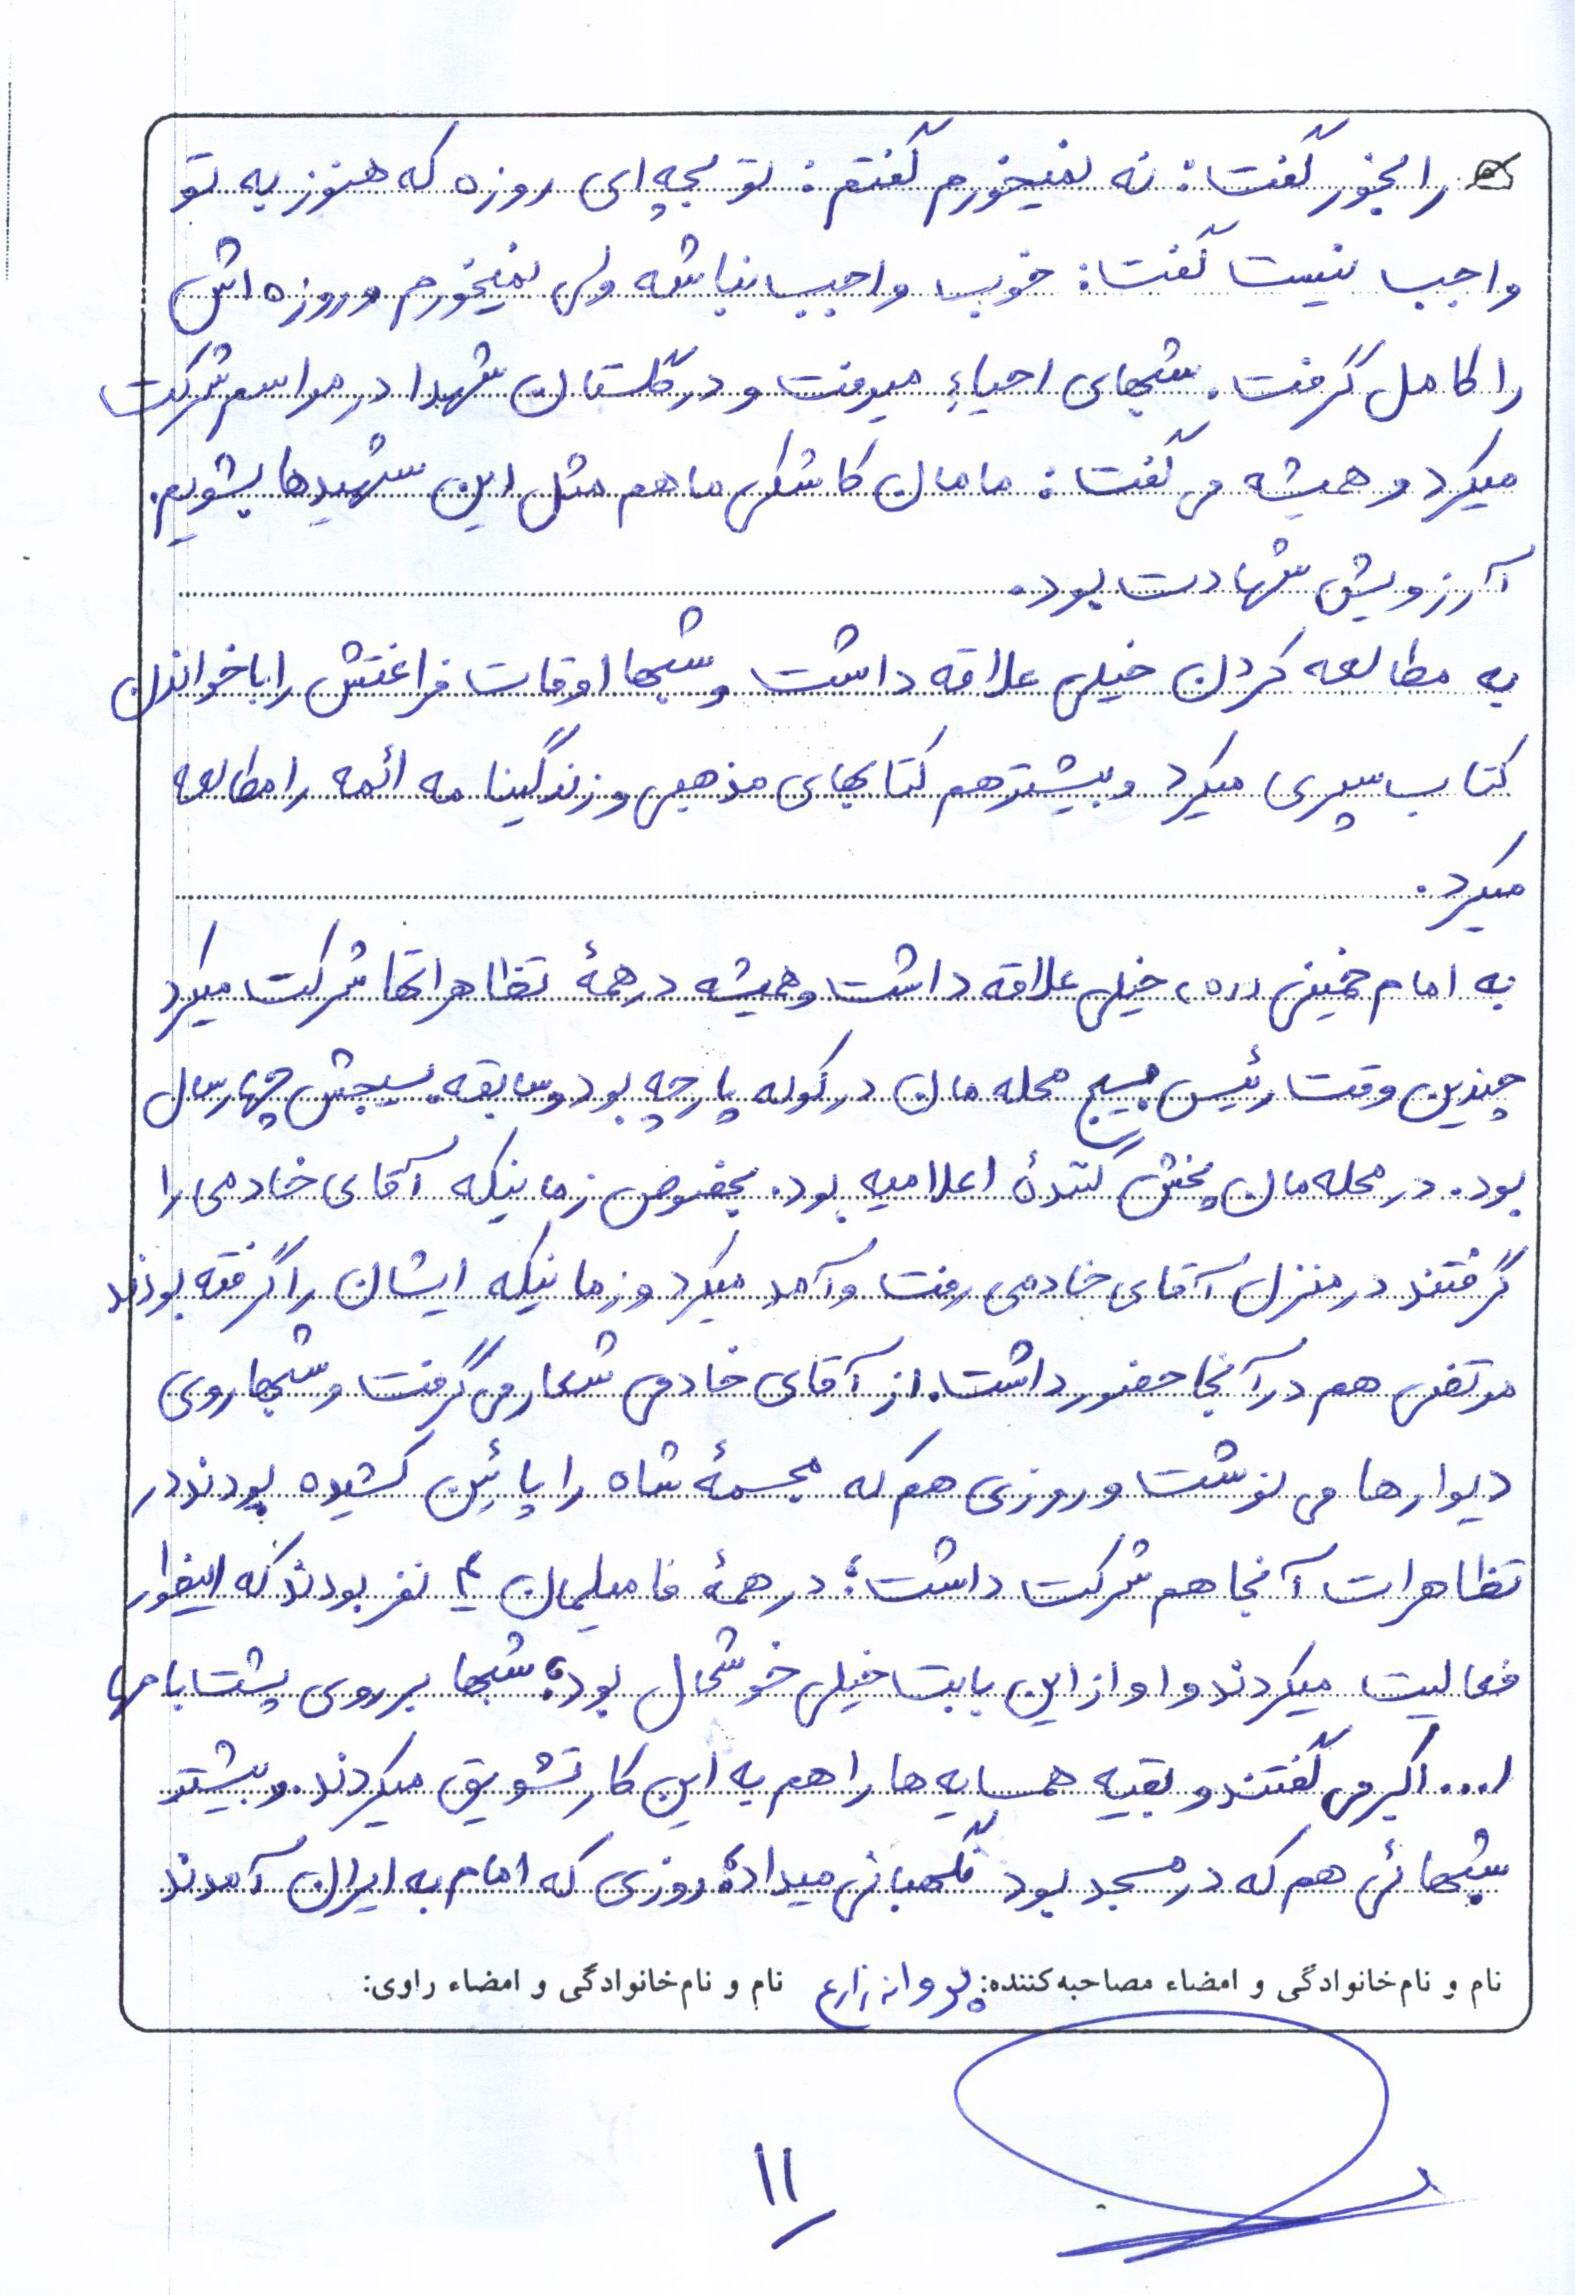 را بخور گفت: نه نمیخورم گفتم: تو بچه ای روزه که هنوز به تو
واجب نیست گفت: خوب واجب نباشه ولی نمیخورم و روزه اش
را کامل گرفت. شبهای احیاء میرفت و در گلستان شهدا در مراسم شرکت
میکرد و همیشه می گفت: مامان کاشکی ما هم مثل این شهیدها بشویم.
آرزویش شهادت بود.
به مطالعه کردن خیلی علاقه داشت و شبها اوقات فراغتش را با خواندن
کتاب سپری میکرد و بیشتر هم کتابهای مذهبی و زندگینامه ائمه را مطالعه
میکرد.
به امام خمینی (ره) خیلی علاقه داشت و همیشه در همۀ تظاهراتها شرکت میکرد
چندین وقت رئیس بسیج محله مان در کوله پارچه بود و سابقه بسیجش چهار سال
بود. در محله مان پخش کنندۀ اعلامیه بود. بخصوص زمانیکه آقای خادمی را
گرفتند در منزل آقای خادمی رفت و آمد میکرد و زمانیکه ایشان را گرفته بودند
مرتضی هم در آنجا حضور داشت. از آقای خادمی شعار می گرفت و شبها روی
دیوارها می نوشت و روزی هم که مجسمۀ شاه را پائین کشیده بودند در
تظاهرات آنجا هم شرکت داشت؛ در همۀ فامیلمان ۴ نفر بودند که اینطور
فعالیت میکردند و او از این بابت خیلی خوشحال بود؛ شبها بر روی پشت بامها
ا... اکبر می گفتند و بقیه همسایه ها را هم به این کار تشویق میکردند. و بیشتر
شبهائی هم که در مسجد بود نگهبانی میداد؛ روزی که امام به ایران آمدند
نام و نام خانوادگی و امضاء مصاحبه کننده: پروانه زارع نام و نام خانوادگی و امضاء راوی:
۱۱